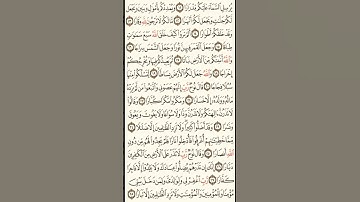 يُرْسِلِ ٱلسَّمَآءَ عَلَيْكُم مِّدْرَارًا وَيُمْدِدْكُم بِأَمْوَٰلٍ وَبَنِينَ وَيَجْعَل
لَّكُمْ جَنَّٰتٍ وَيَجْعَل لَّكُمْ أَنْهَٰرًا مَّا لَكُمْ لَا تَرْجُونَ لِلَّهِ وَقَارًا
وَقَدْ خَلَقَكُمْ أَطْوَارًا أَلَمْ تَرَوْا۟ كَيْفَ خَلَقَ ٱللَّهُ سَبْعَ سَمَٰوَٰتٍ
طِبَاقًا وَجَعَلَ ٱلْقَمَرَ فِيهِنَّ نُورًا وَجَعَلَ ٱلشَّمْسَ سِرَاجًا
وَٱللَّهُ أَنۢبَتَكُم مِّنَ ٱلْأَرْضِ نَبَاتًا ثُمَّ يُعِيدُكُمْ فِيهَا وَيُخْرِجُكُمْ
إِخْرَاجًا وَٱللَّهُ جَعَلَ لَكُمُ ٱلْأَرْضَ بِسَاطًا لِّتَسْلُكُوا۟ مِنْهَا
سُبُلًا فِجَاجًا قَالَ نُوحٌ رَّبِّ إِنَّهُمْ عَصَوْنِى وَٱتَّبَعُوا۟ مَن لَّمْ يَزِدْهُ
مَالُهُۥ وَوَلَدُهُۥٓ إِلَّا خَسَارًا وَمَكَرُوا۟ مَكْرًا كُبَّارًا وَقَالُوا۟
لَا تَذَرُنَّ ءَالِهَتَكُمْ وَلَا تَذَرُنَّ وَدًّا وَلَا سُوَاعًا وَلَا يَغُوثَ وَيَعُوقَ
وَنَسْرًا وَقَدْ أَضَلُّوا۟ كَثِيرًا وَلَا تَزِدِ ٱلظَّٰلِمِينَ إِلَّا ضَلَٰلًا
مِّمَّا خَطِيٓـَٰٔتِهِمْ أُغْرِقُوا۟ فَأُدْخِلُوا۟ نَارًا فَلَمْ يَجِدُوا۟ لَهُم مِّن دُونِ
ٱللَّهِ أَنصَارًا وَقَالَ نُوحٌ رَّبِّ لَا تَذَرْ عَلَى ٱلْأَرْضِ مِنَ ٱلْكَٰفِرِينَ
دَيَّارًا إِنَّكَ إِن تَذَرْهُمْ يُضِلُّوا۟ عِبَادَكَ وَلَا يَلِدُوٓا۟ إِلَّا فَاجِرًا
كَفَّارًا رَّبِّ ٱغْفِرْ لِى وَلِوَٰلِدَىَّ وَلِمَن دَخَلَ بَيْتِىَ
مُؤْمِنًا وَلِلْمُؤْمِنِينَ وَٱلْمُؤْمِنَٰتِ وَلَا تَزِدِ ٱلظَّٰلِمِينَ إِلَّا تَبَارًۢا